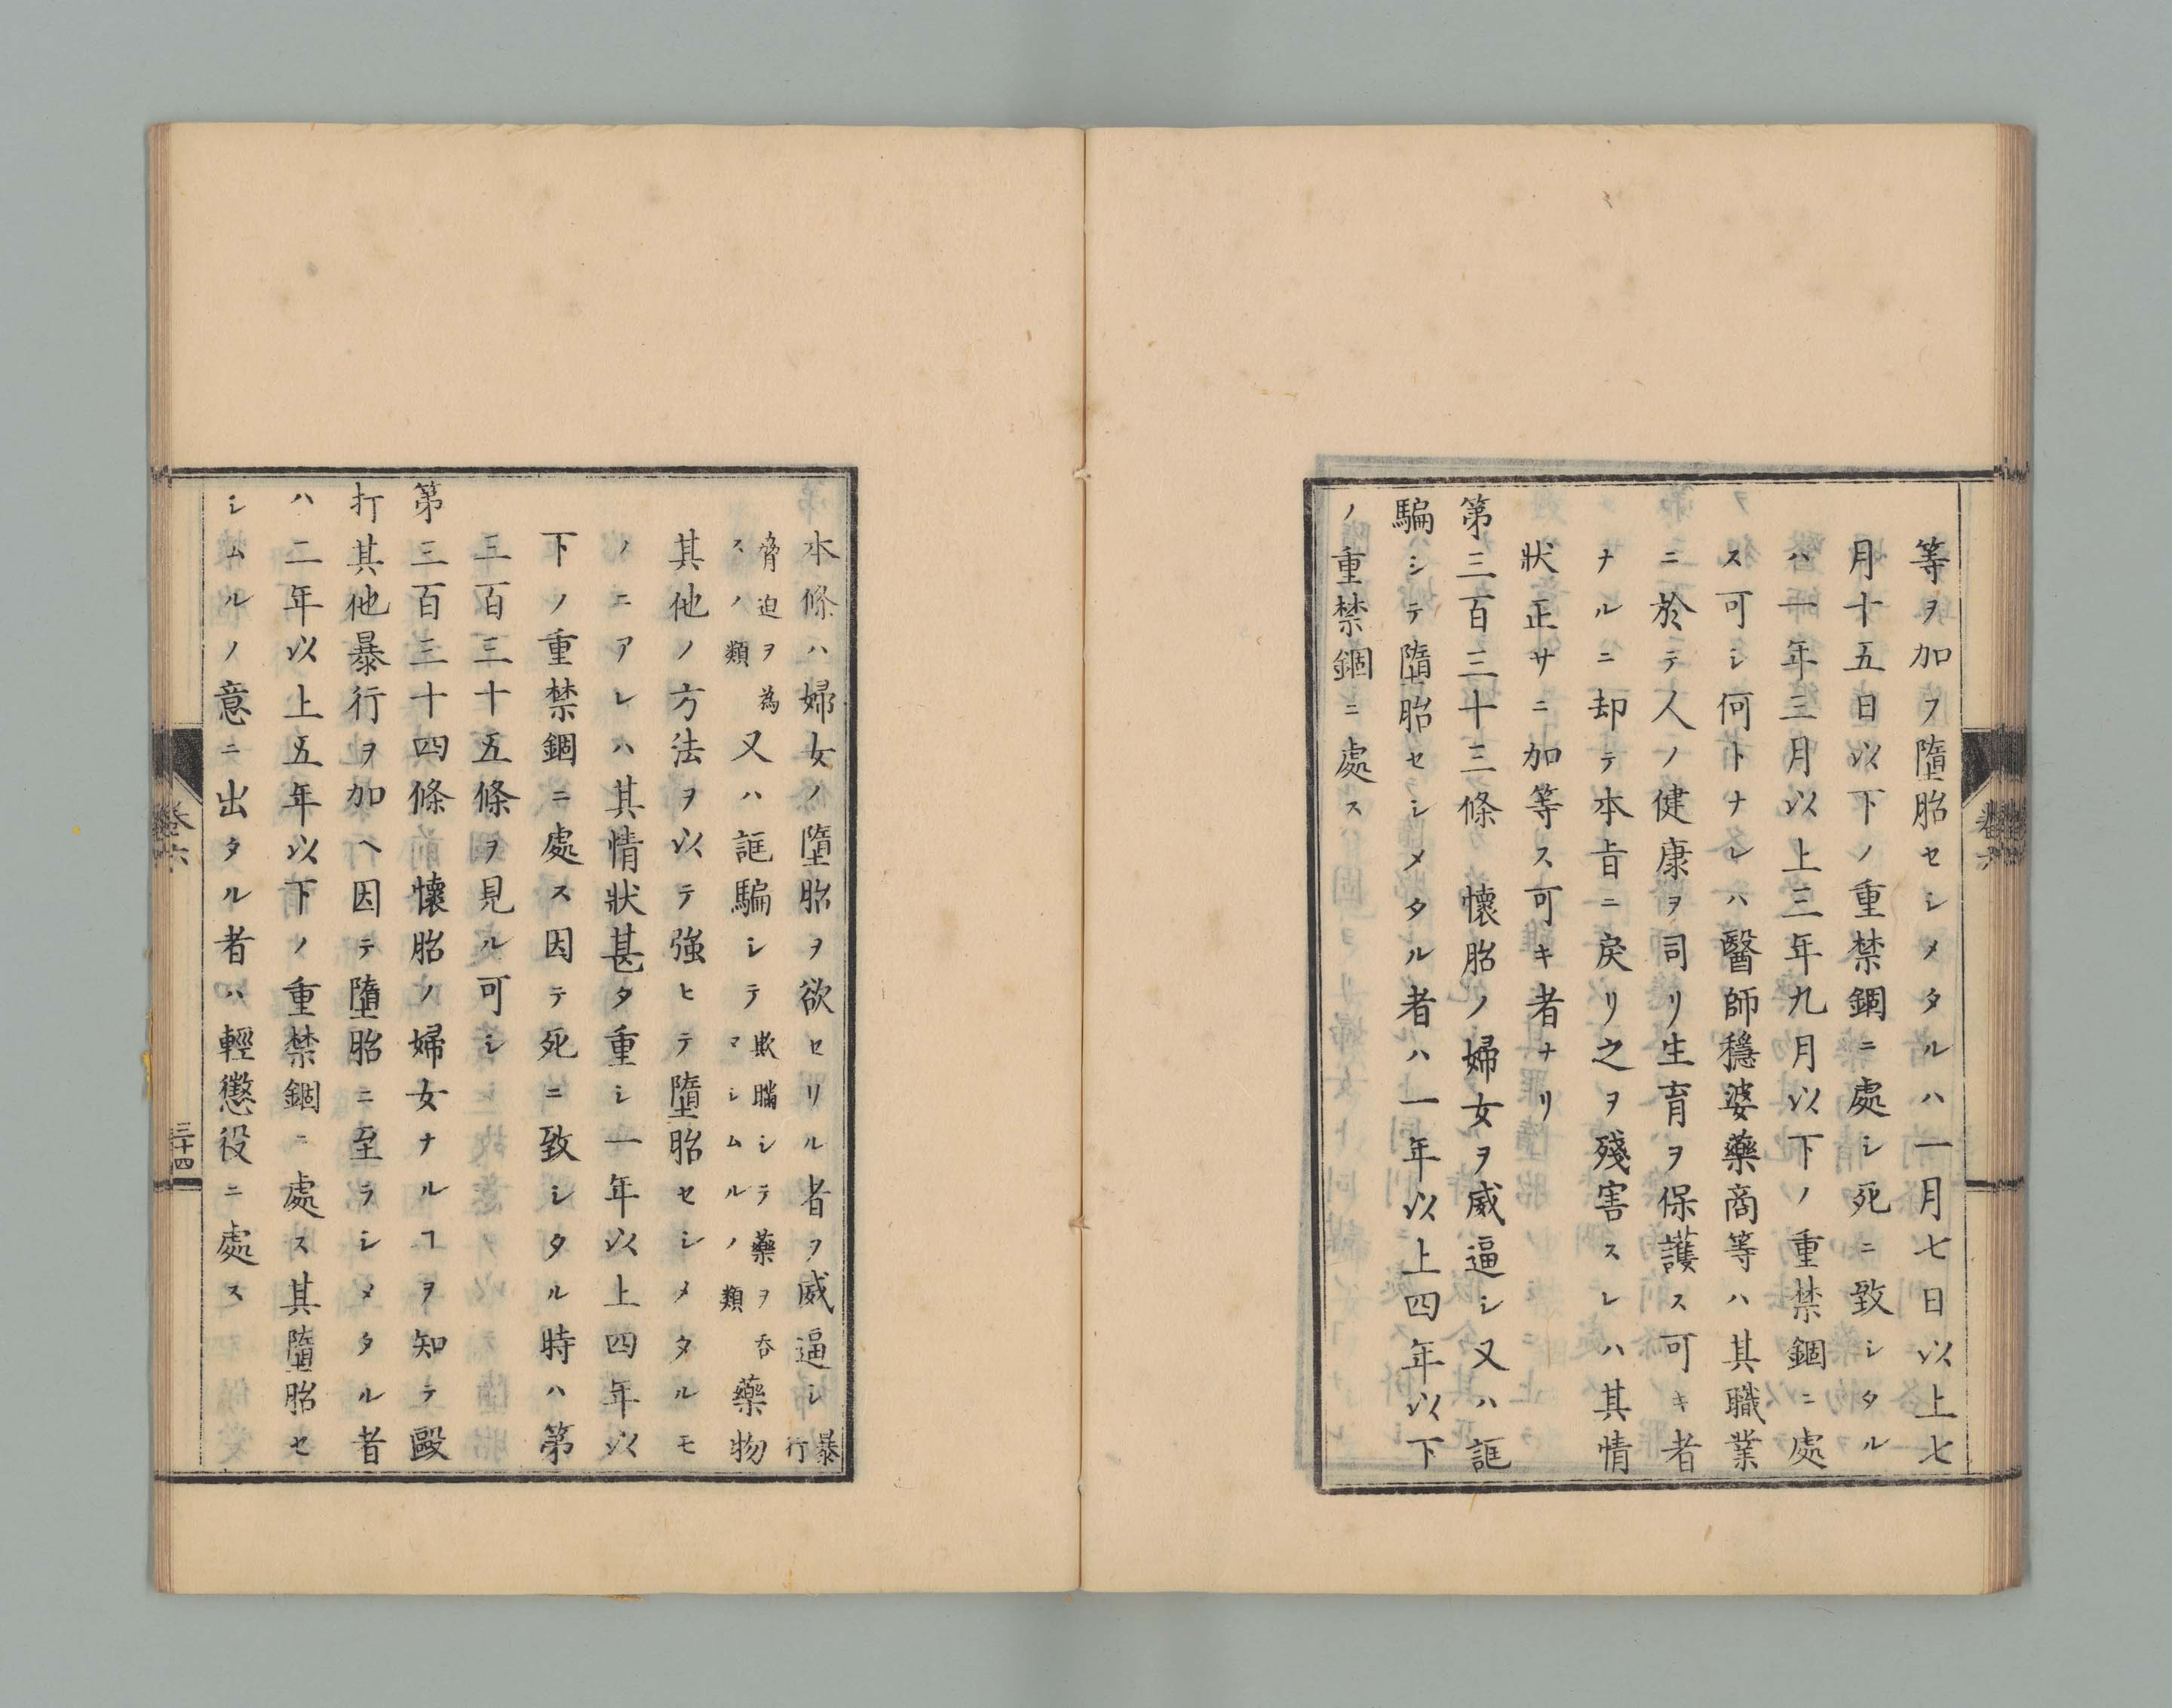 等ヲ加フ墮胎セシメタルハ一月七日以上七
月十五日以下ノ重禁錮ニ處シ死ニ致シタル
ハ一年三月以上三年九月以下ノ重禁錮ニ處
ス可シ何トナレハ醫師穩婆藥商等ハ其職業
ニ於テ人ノ健康ヲ司リ生育ヲ保護ス可キ者
ナルニ却テ本旨ニ戻リ之ヲ殘害スレハ其情
狀正サニ加等ス可キ者ナリ
第三百三十三條 懷胎ノ婦女ヲ威逼シ又ハ誆
騙シテ墮胎セシメタル者ハ一年以上四年以下
ノ重禁錮ニ處ス
卷六
本條ハ婦女ノ墮胎ヲ欲セリル者ヲ威逼シ暴行
脅迫ヲ為スノ類又ハ誆騙シテ欺瞞シテ藥ヲ呑マシムルノ類藥物
其他ノ方法ヲ以テ強ヒテ墮胎セシメタルモ
ノニアレハ其情狀甚タ重シ一年以上四年以
下ノ重禁錮ニ處ス因テ死ニ致シタル時ハ第
三百三十五條ヲ見ル可シ
第三百三十四條 懷胎ノ婦女ナルヿヲ知テ毆
打其他暴行ヲ加ヘ因テ墮胎ニ至ラシメタル者
ハ二年以上五年以下ノ重禁錮ニ處ス其墮胎セ
シムルノ意ニ出タル者ハ輕懲役ニ處ス
卷六
三十四